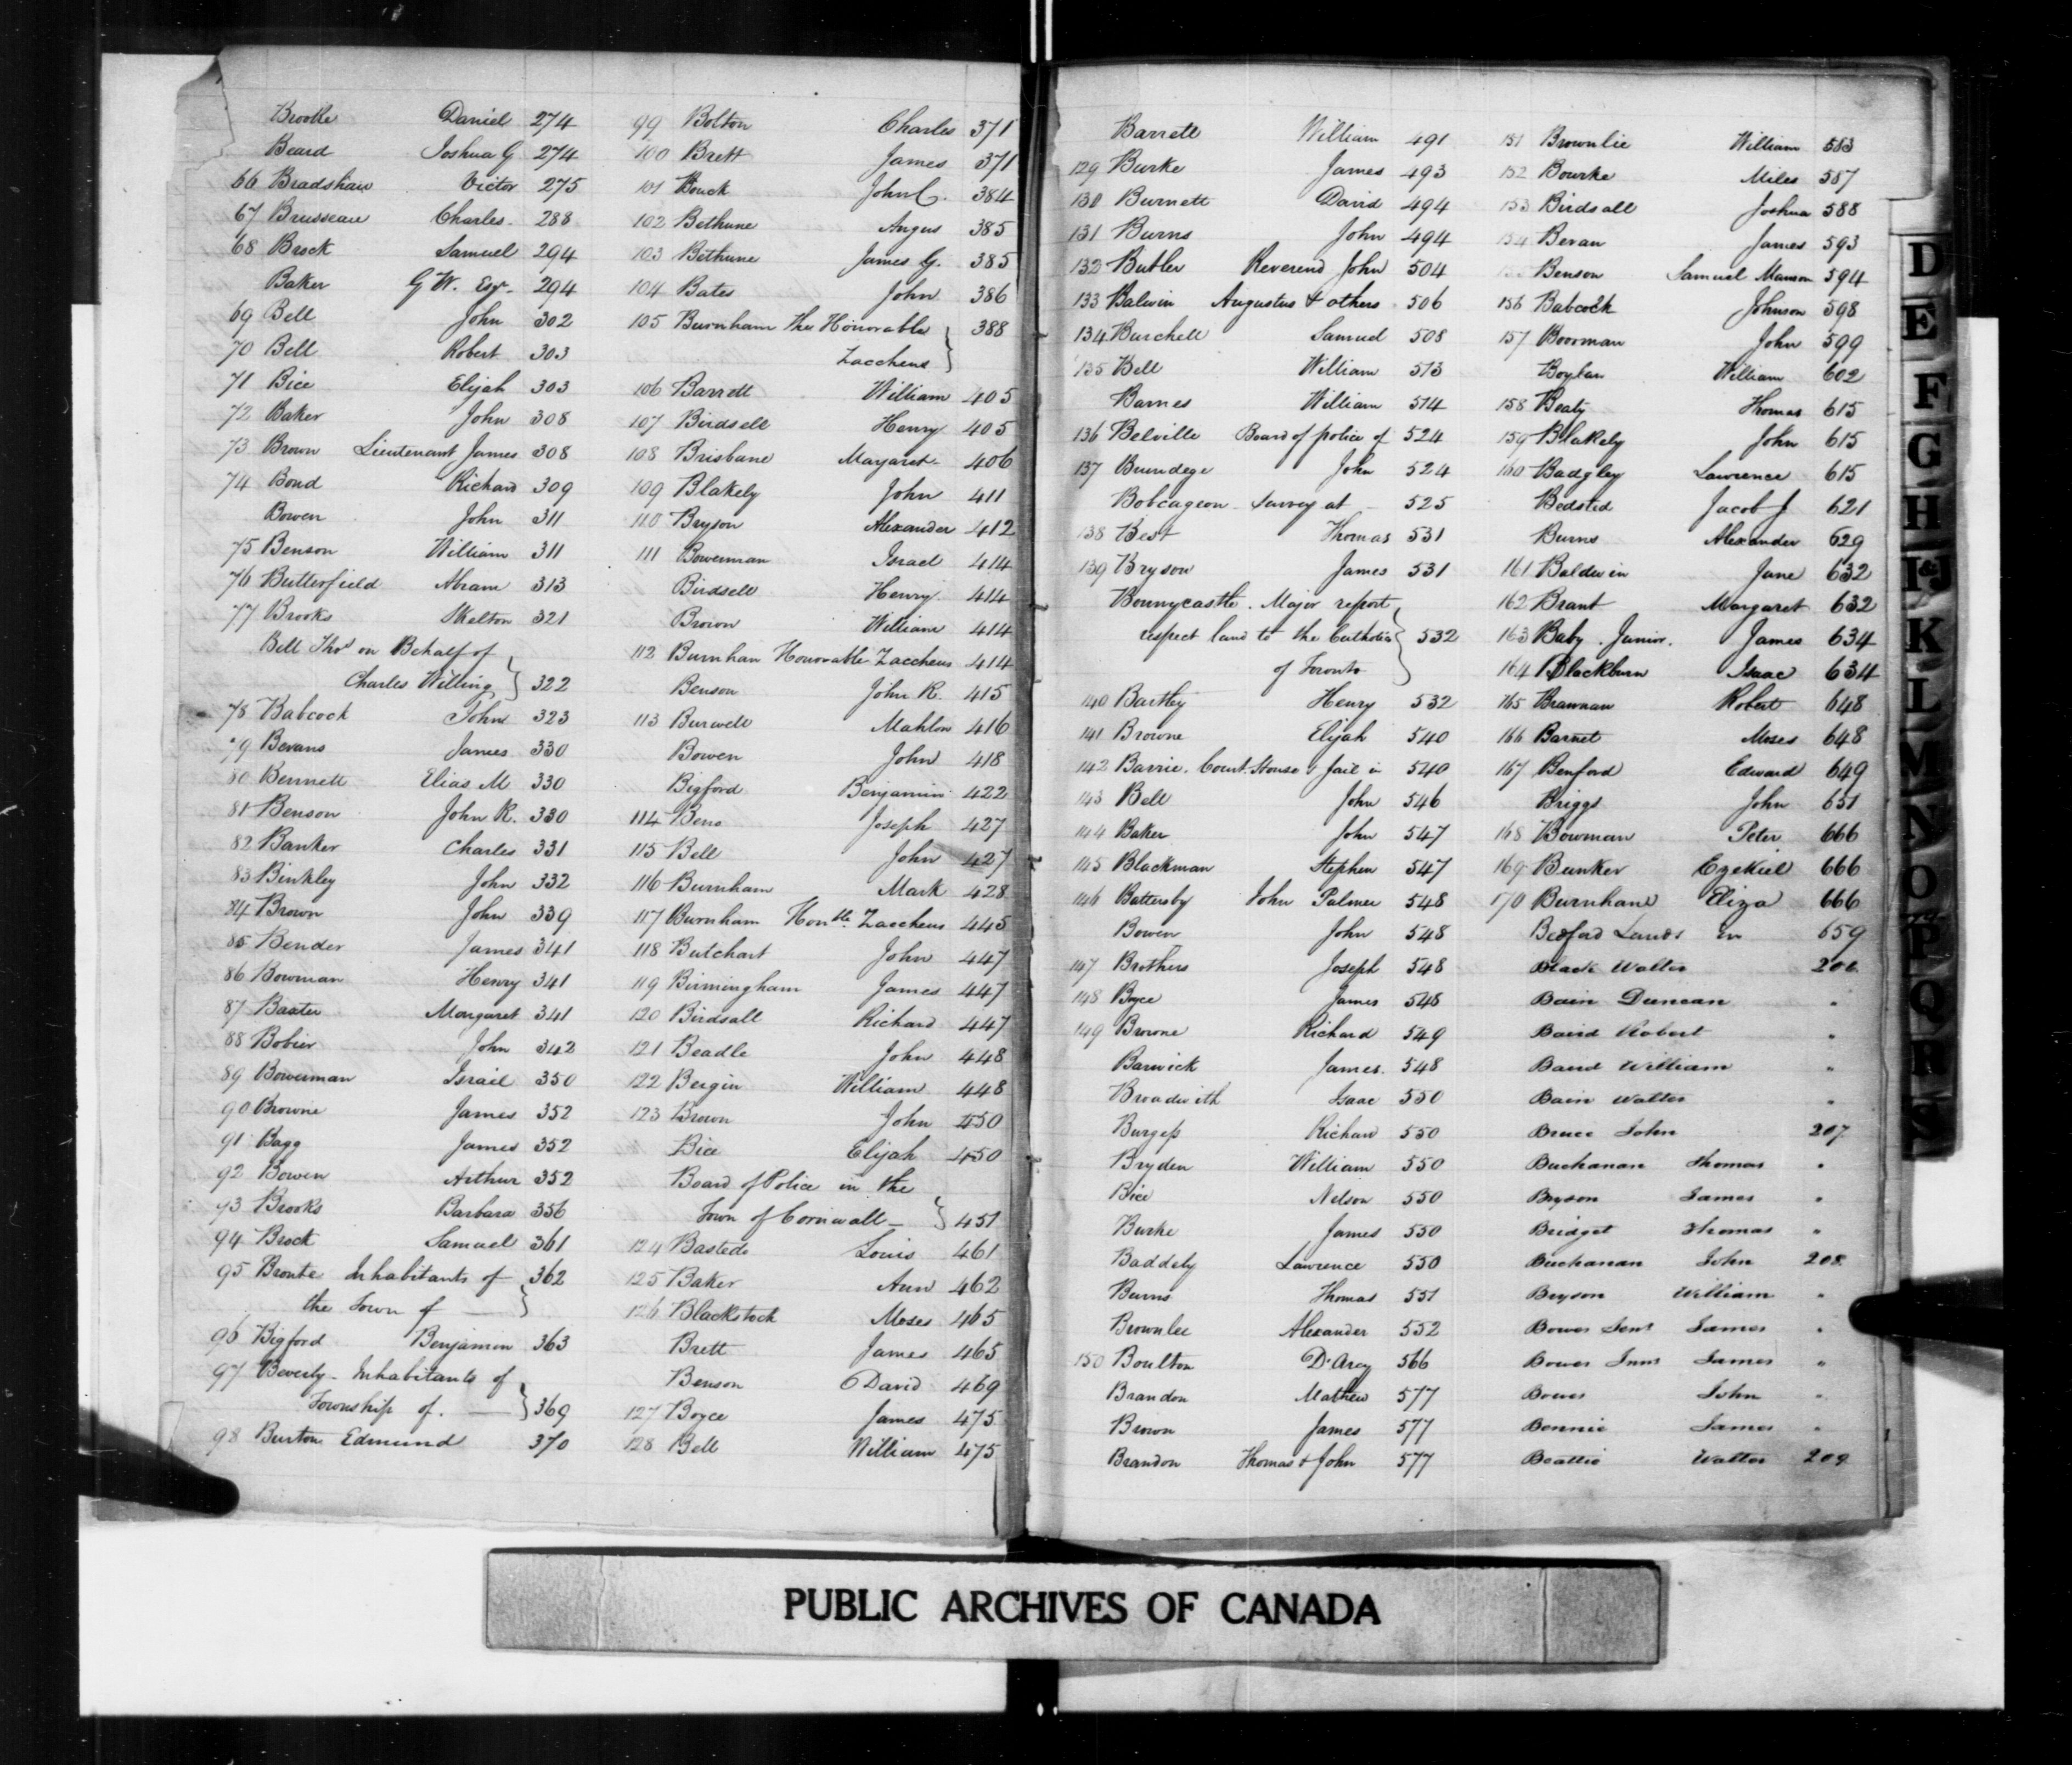 Brooke Daniel 274
Beard Joshua G 274
66 Bradshaw Victor 275
67 Brusseau Charles 288
68 Brock Samuel 294
Baker G W. Esqr. 294
69 Bell John 302
70 Bell Robert 303
71 Bice Elijah 303
72 Baker John 308
73 Brown Lieutenant James 308
74 Bond Richard 309
Bowen John 311
75 Benson William 311
76 Butterfield Abram 313
77 Brooks Skelton 321
Bell Thos on Behalf of
Charles Willing } 322
78 Babcock John 323
79 Bevans James 330
80 Bennett Elias M 330
81 Benson John R. 330
82 Banker Charles 331
83 Binkley John 332
84 Brown John 339
85 Bender James 341
86 Bowman Henry 341
87 Baxter Margaret 341
88 Bobier John 342
89 Bowerman Israel 350
90 Browne James 352
91 Bagg James 352
92 Bowen Arthur 352
93 Brooks Barbara 356
94 Brock Samuel 361
95 Bronte Inhabitants of 362
the Town of }
96 Bigford Benjamin 363
97 Beverly - Inhabitants of
Township of. } 369
98 Burton Edmund 370
99 Bolton Charles 371
100 Brett James 371
101 Bouck John C. 384
102 Bethune Angus 385
103 Bethune James G. 385
104 Bates John 386
105 Burnham The Honorable } 388
Zaccheus
106 Barrett William 405
107 Birdsell Henry 405
108 Brisbane Margaret 406
109 Blakely John 411
110 Bryson Alexander 412
111 Bowerman Israel 414
Birdsell Henry 414
Brown William 414
112 Burnham Honorable Zaccheus 414
Benson John R. 415
113 Burwell Mahlon 416
Bowen John 418
Bigford Benjamin 422
114 Beno Joseph 427
115 Bell John 427
116 Burnham Mark 428
117 Burnham Honble. Zaccheus 445
118 Butchart John 447
119 Birmingham James 447
120 Birdsall Richard 447
121 Beadle John 448
122 Bergin William 448
123 Brown John 450
Bice Elijah 450
Board of Police in the
Town of Cornwall - } 451
124 Bastedo Louis 461
125 Baker Ann 462
126 Blackstock Moses 465
Brett James 465
Benson David 469
127 Boyce James 475
128 Bell William 475
Barrett William 491
129 Burke James 493
130 Burnett David 494
131 Burns John 494
132 Butler Reverend John 504
133 Balwin Augustus & others 506
134 Burchell Samuel 508
135 Bell William 513
Barnes William 514
136 Belville Board of police of 524
137 Brundege John 524
Bobcageon - Survey at - 525
138 Best Thomas 531
139 Bryson James 531
Bonnycastle. Major report
respect land to the Catholics } 532
of Toronto
140 Bartley Henry 532
141 Browne Elijah 540
142 Barrie. Court House & Jail in 540
143 Bell John 546
144 Baker John 547
145 Blackman Stephen 547
146 Battersby John Palmer 548
Bowen John 548
147 Brothers Joseph 548
148 Boyce James 548
149 Browne Richard 549
Barwick James. 548
Broadwith Isaac 550
Burgess Richard 550
Bryden William 550
Bice Nelson 550
Burke James 550
Baddely Lawrence 550
Burns Thomas 551
Brownlee Alexander 552
150 Boulton D'Arcy 566
Brandon Mathew 577
Brown James 577
Brandon Thomas & John 577
151 Brownlie William 583
152 Bourke Miles 587
153 Birdsall Joshua 588
154 Bevan James 593
155 Benson Samuel Manson 594
156 Babcock Johnson 598
157 Boorman John 599
Boylan William 602
158 Beaty Thomas 615
159 Blakely John 615
160 Badgley Lawrence 615
Bedsted Jacob J 621
Burns Alexander 629
161 Baldwin Jane 632
162 Brant Margaret 632
163 Baby. Junior. James 634
164 Blackburn Isaac 634
165 Brannan Robert 648
166 Barnet Moses 648
167 Benford Edward 649
Briggs John 651
168 Bowman Peter 666
169 Bunker Ezekiel 666
170 Burnham Eliza 666
Bedford Lands in 659
Black Walter 206
Bain Duncan "
Baird Robert "
Baird William "
Bain Walter "
Bruce John 207
Buchanan Thomas "
Bryson James "
Bridget Thomas "
Buchanan John 208
Bryson William "
Bower Senr James "
Bower Junr James "
Bower John "
Bennie James "
Beattie Walter 209
D
E
F
G
H
I&J
K
L
M
N
O
P
Q
R
PUBLIC ARCHIVES OF CANADA